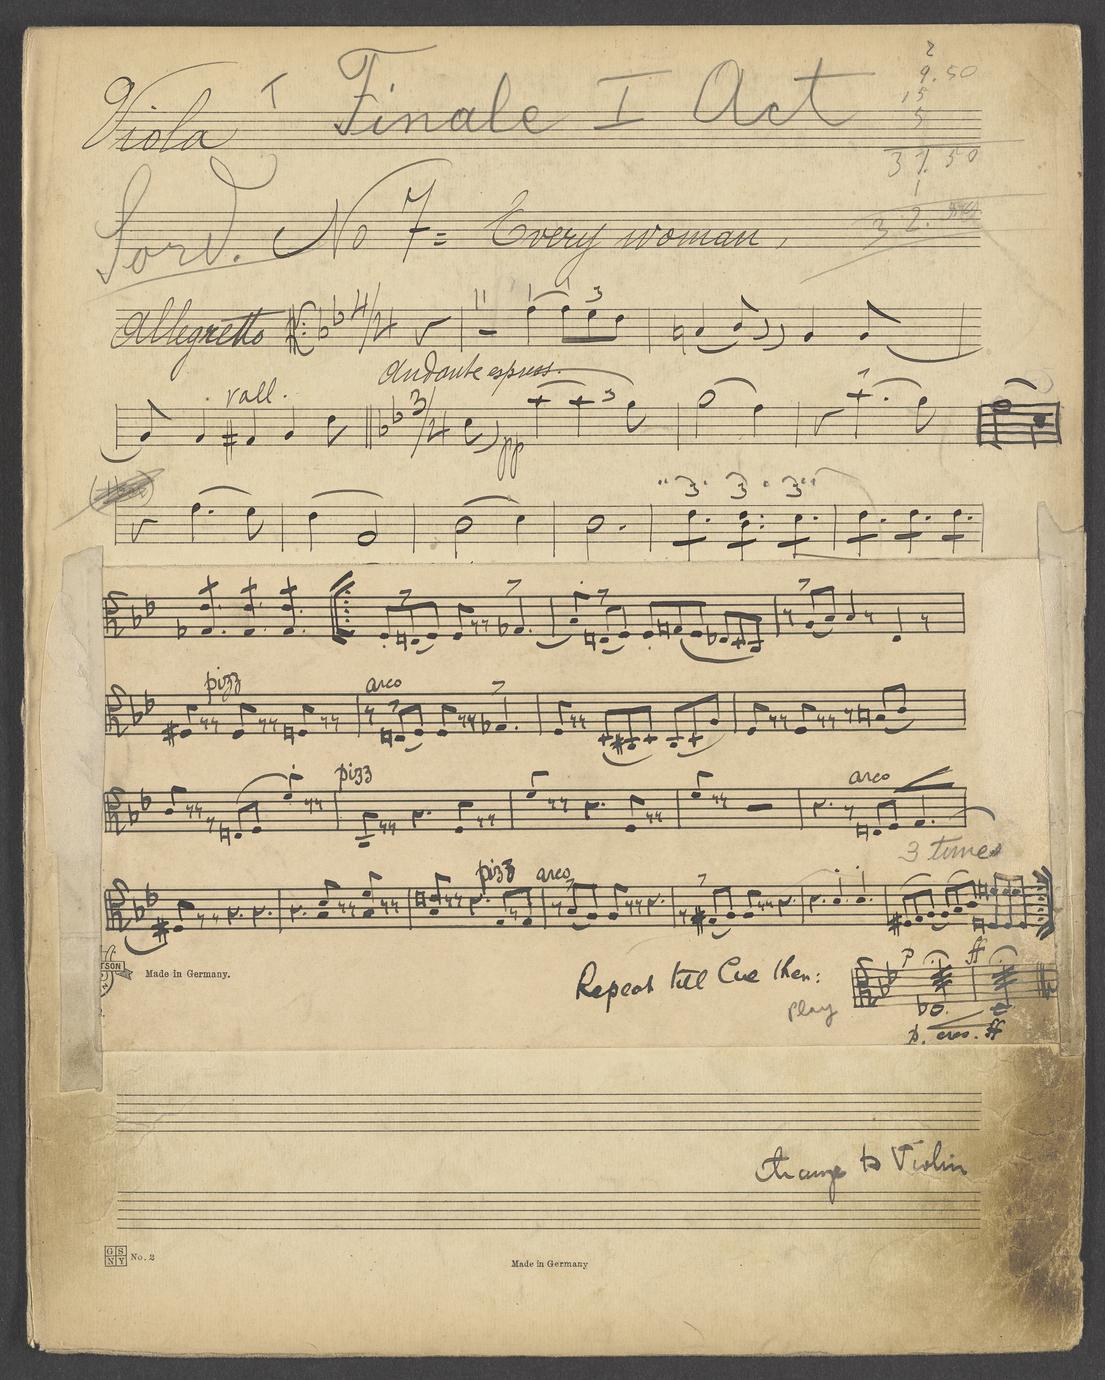 Viola I Finale I Act
2
9.50
15
5
31.50
1
32.
Sord. No 7= Every woman,
Allegretto 4/4 3
Andante espress.
rall. 3/4 pp 3
"3" 3 "3"
pizz arco
pizz arco
3 times
pizz arco
TSON Made in Germany.
Repeat till Cue then: p ff
play
p. cres. ff
change to Violin
GS NY No. 2
Made in Germany